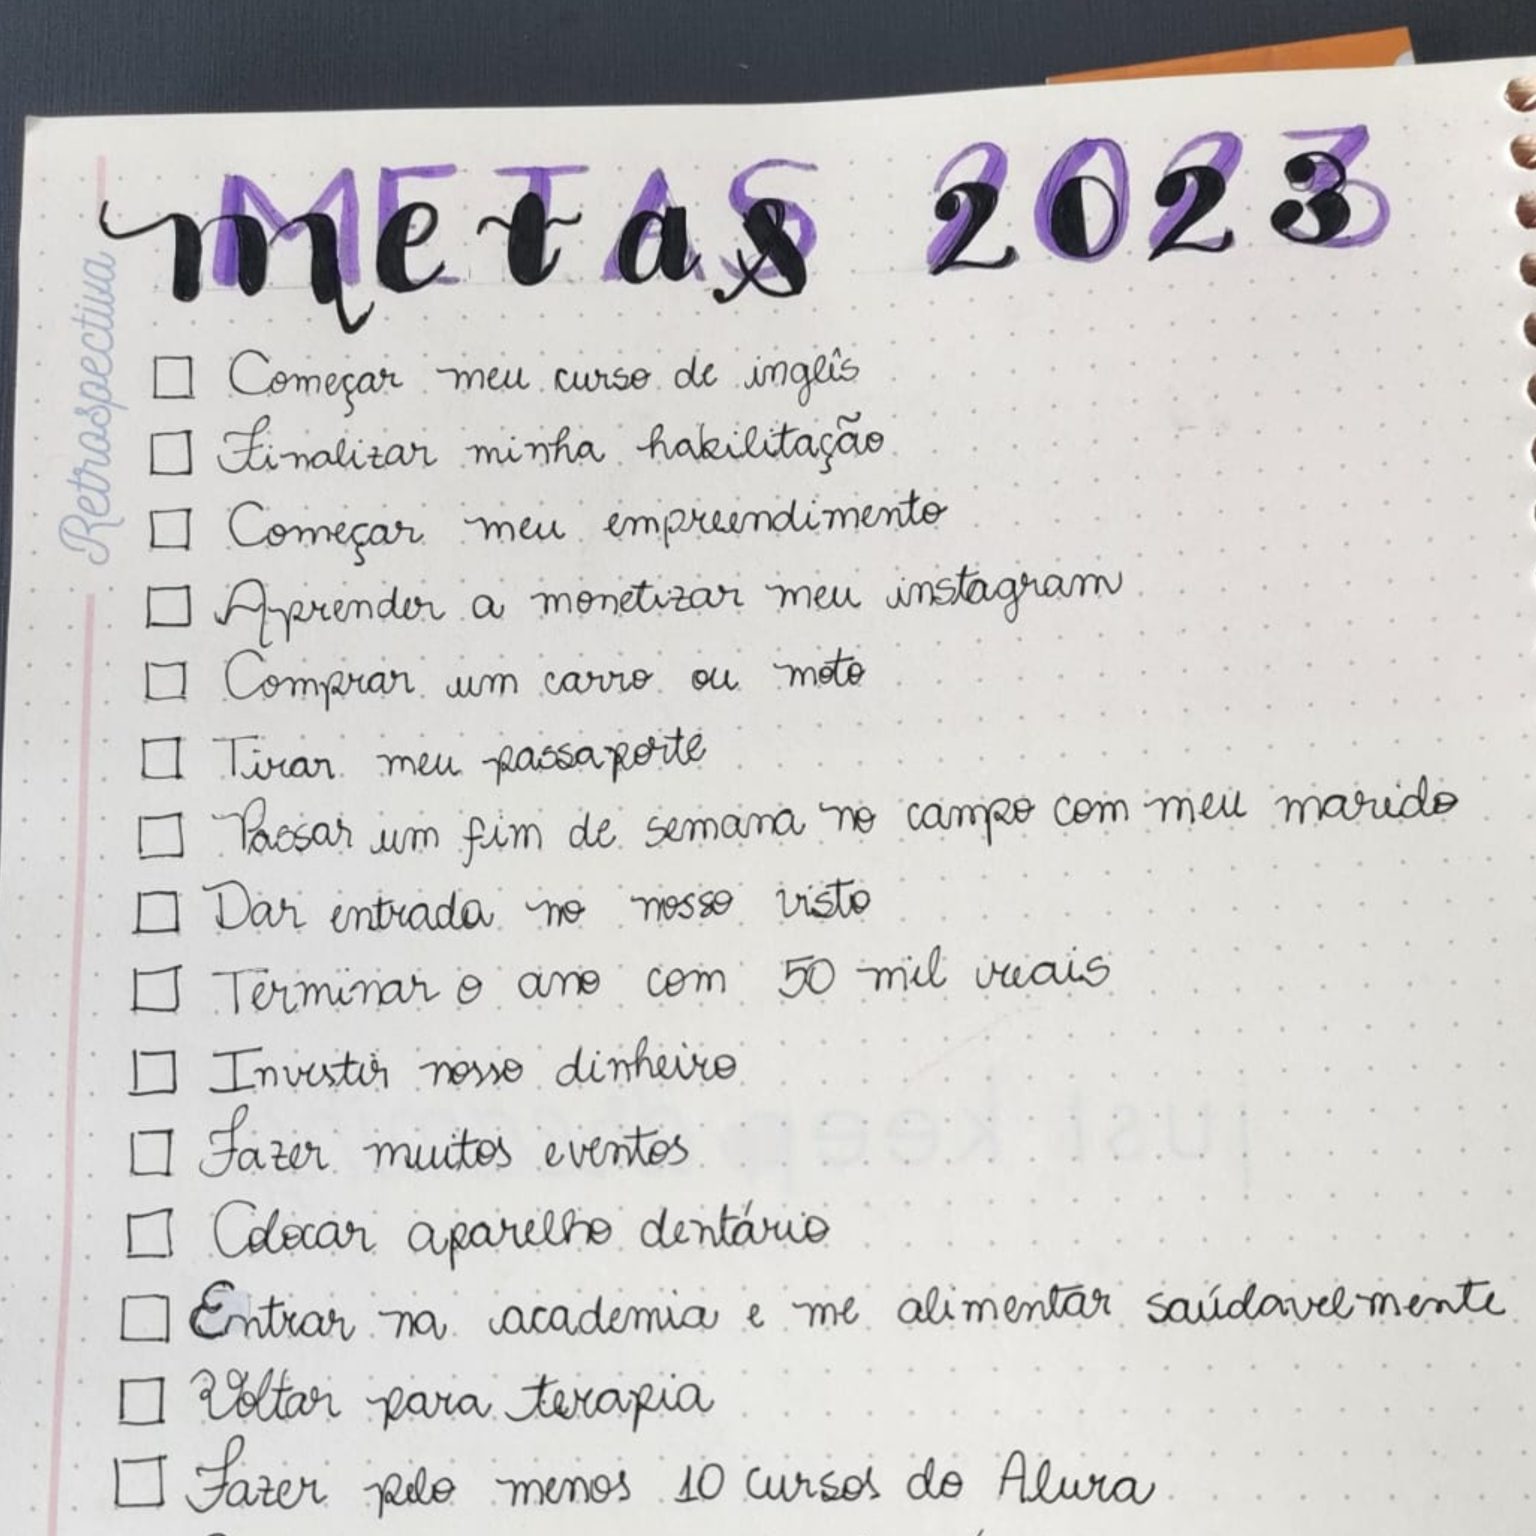 METAS 2023
metas 2023
Retrospectiva
Começar meu curso de inglês
Finalizar minha habilitação
Começar meu empreendimento
Aprender a monetizar meu instagram
Comprar um carro ou moto
Tirar meu passaporte
Passar um fim de semana no campo com meu marido
Dar entrada no nosso visto
Terminar o ano com 50 mil reais
Investir nosso dinheiro
Fazer muitos eventos
Colocar aparelho dentário
Entrar na academia e me alimentar saúdavelmente
Voltar para terapia
Fazer pelo menos 10 cursos do Alura
just keep